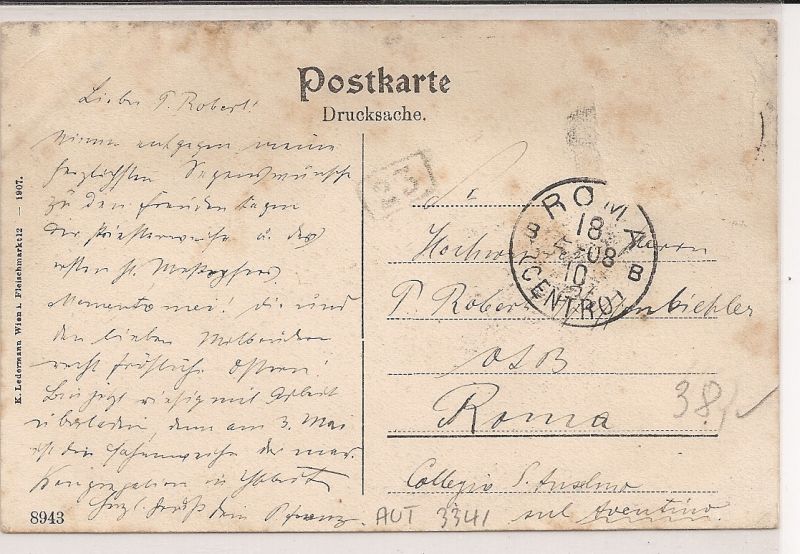 Postkarte
Drucksache.
Lieber P. Robert!
meine
herzlichsten Segenswünsche
zu den Freuden Tagen
der Priesterweihe u. des
ersten hl. Messopfers.
Memento mei! dir und
den lieben Mitbrüdern
recht fröhliche Ostern!
Bin jetzt riesig mit Arbeit
überladen, denn am 3. Mai
ist die Fahnenweihe der mar.
Kongregation in
Herzl. Grüßt dein P. Franz
K. Ledermann Wien I. Fleischmarkt 12 — 1907.
8943
23
ROMA
18
08
10
B B
(CENTRO)
Herrn
P. Robert
OSB
Roma
Collegio S. Anselmo
sul Aventino
38,-
AUT 3341